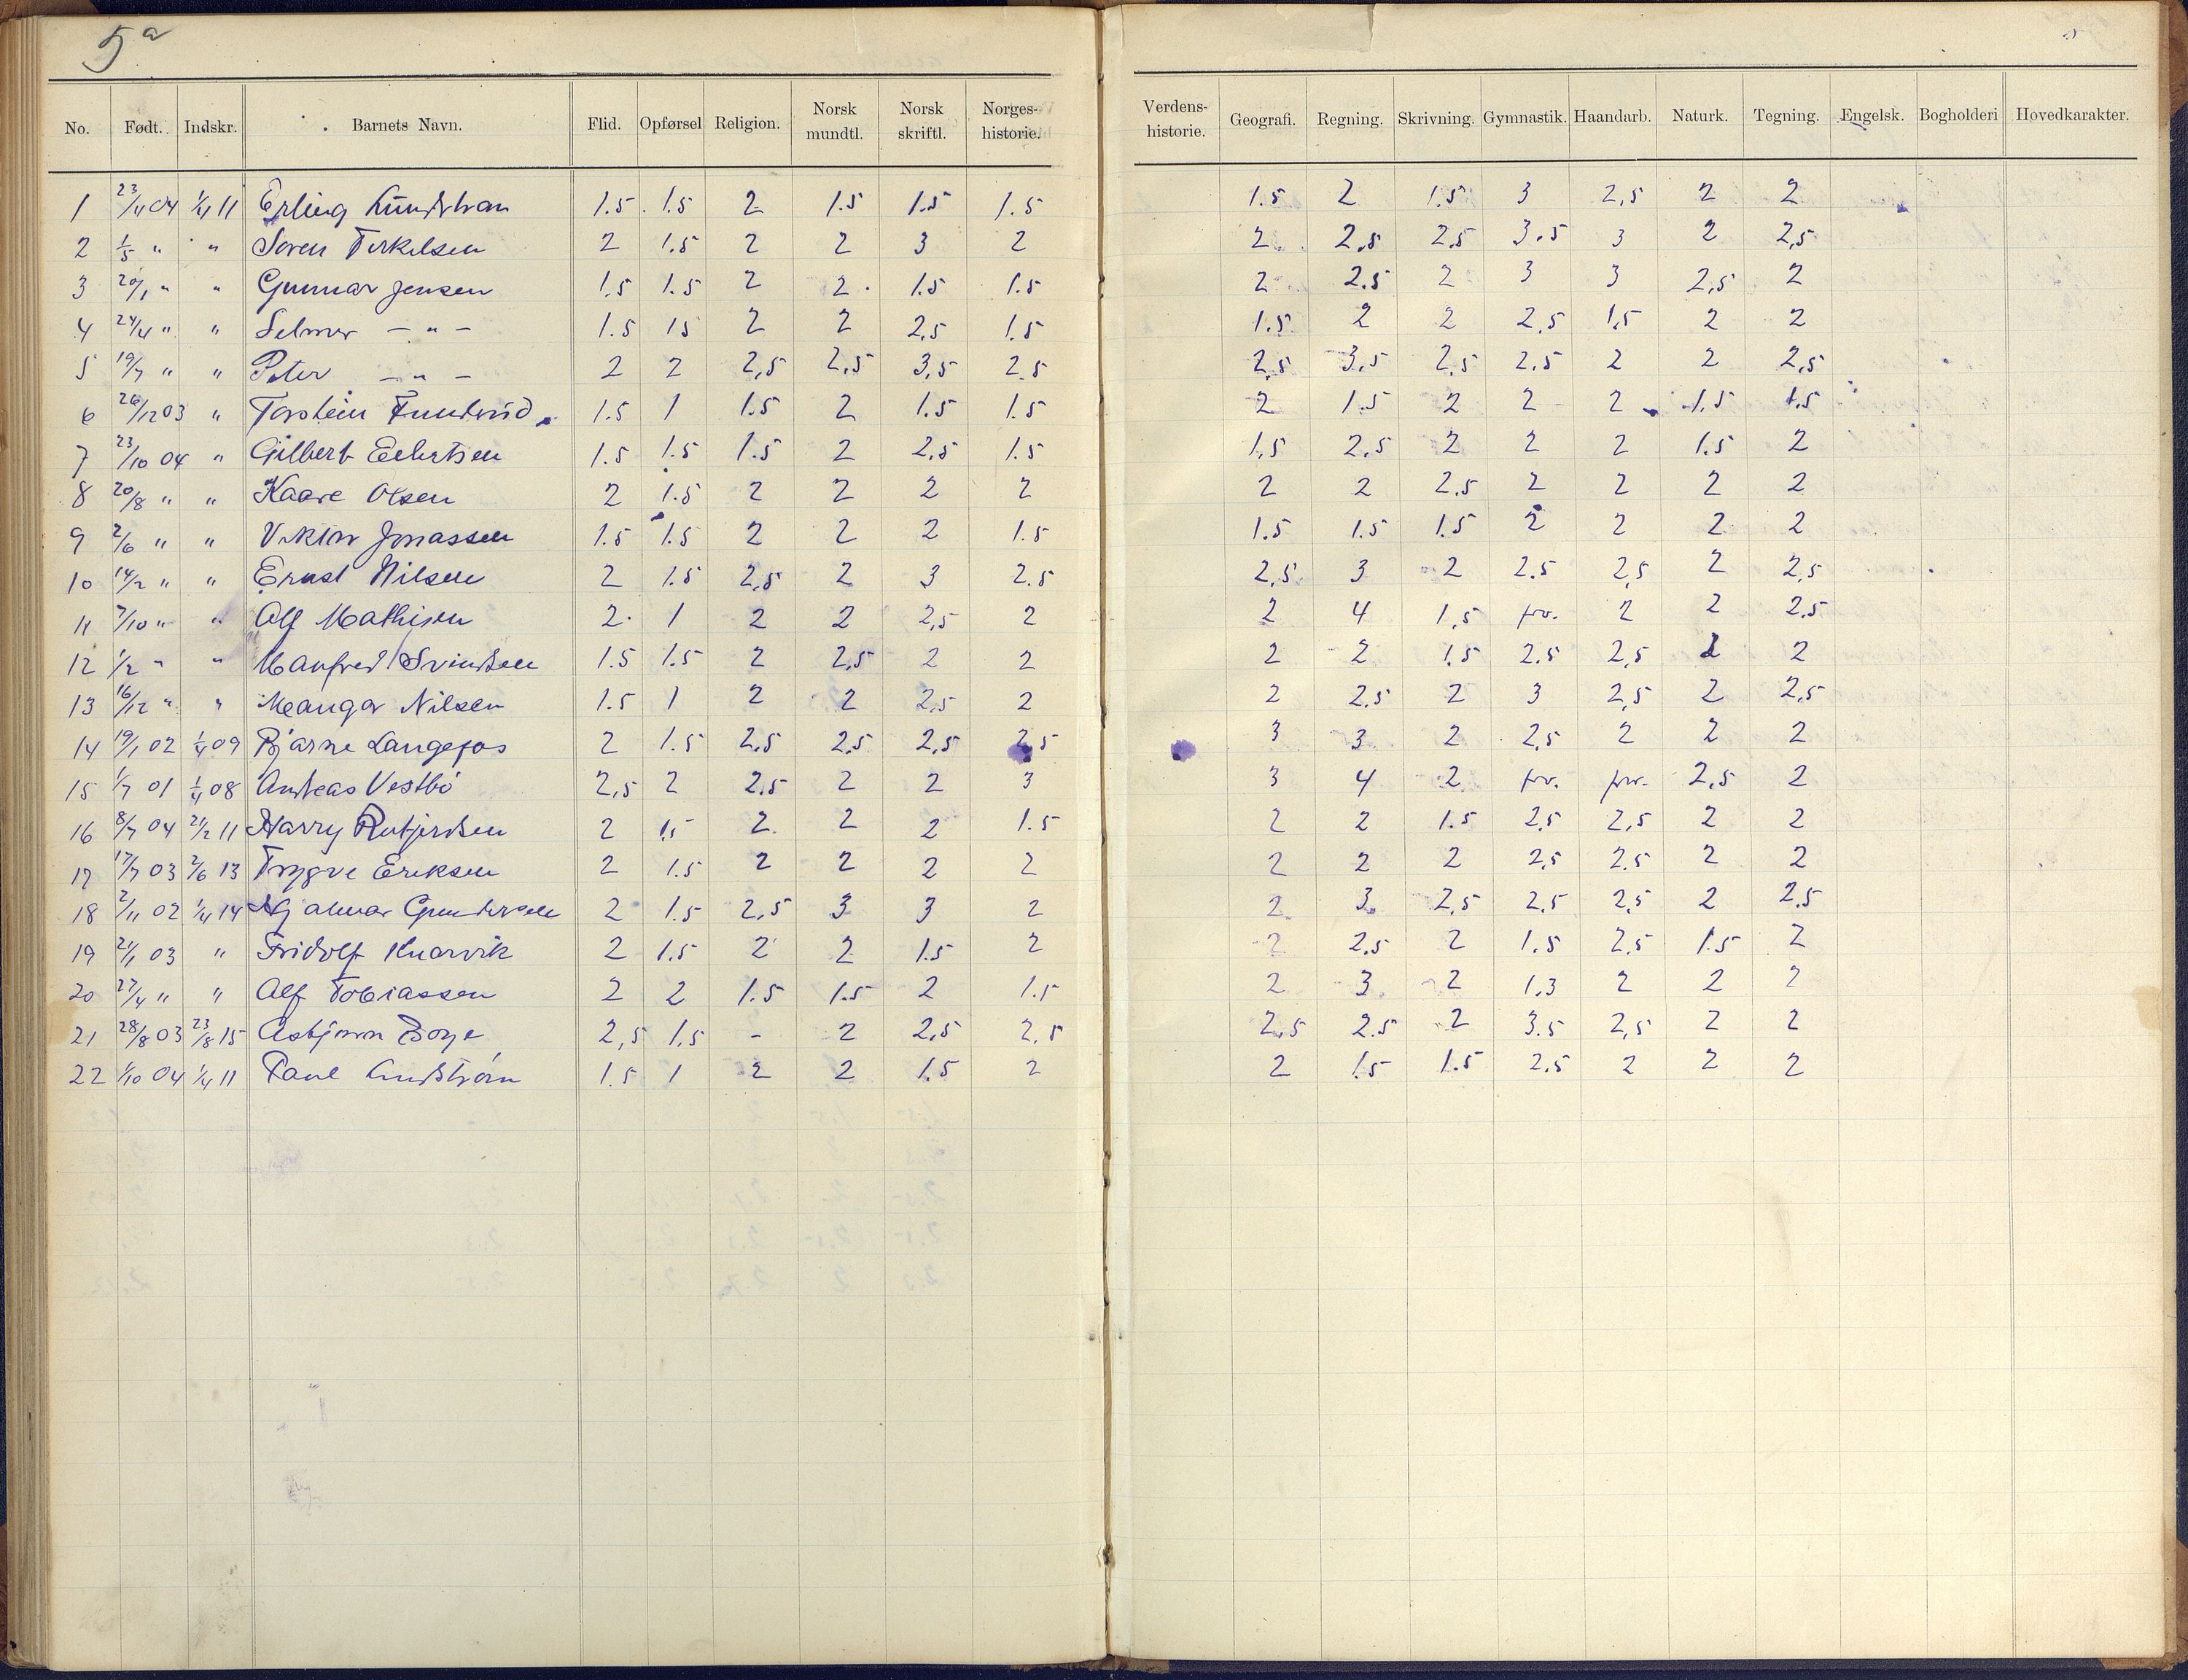 5a
No. Født. Indskr. Barnets Navn. Flid. Opførsel Religion. Norsk mundtl. Norsk skriftl. Norges-historie. Verdens-historie. Geografi. Regning. Skrivning. Gymnastik. Haandarb. Naturk. Tegning. Engelsk. Bogholderi Hovedkarakter.
1 23/4 04 1/4 11 Erling 1.5 1.5 2 1.5 1.5 1.5 1.5 2 1.5 3 2,5 2 2
2 1/5 " " Soren Terkelsen 2 1.5 2 2 3 2 2 2.5 2.5 3.5 3 2 2,5
3 20/1 " " Gunnar Jensen 1.5 1.5 2 2 1.5 1.5 2 2.5 2 3 3 2,5 2
4 24/4 " " Selmer — " — 1.5 15 2 2 2,5 1.5 1.5 2 2 2,5 1,5 2 2
5 19/7 " " Peter — " — 2 2 2,5 2,5 3,5 2.5 2,5 3,5 2,5 2.5 2 2 2,5
6 26/12 03 " Torstein 1.5 1 1.5 2 1.5 1.5 2 1.5 2 2 2 1.5 1.5
7 23/10 04 " Gilbert 1.5 1.5 1.5 2 2,5 1.5 1,5 2,5 2 2 2 1.5 2
8 20/8 " " Kaare Olsen 2 1.5 2 2 2 2 2 2 2.5 2 2 2 2
9 2/6 " " Viktor Jonassen 1.5 1.5 2 2 2 1.5 1.5 1.5 1.5 2 2 2 2
10 14/2 " " Ernst Nilsen 2 1.5 2,5 2 3 2.5 2,5 3 2 2.5 2,5 2 2,5
11 7/10 " " Alf Mathisen 2 1 2 2 2,5 2 2 4 1,5 frv. 2 2 2.5
12 1/2 " " Manfred Svindsen 1.5 1.5 2 2,5 2 2 2 2 1.5 2.5 2,5 2 2
13 16/12 " " Mangor Nilsen 1.5 1 2 2 2,5 2 2 2.5 2 3 2,5 2 2,5
14 19/1 02 1/4 09 Bjarne Langefos 2 1.5 2,5 2,5 2,5 2,5 3 3 2 2,5 2 2 2
15 1/7 01 1/4 08 Andreas Vestbö 2,5 2 2.5 2 2 3 3 4 2 frv. frv. 2,5 2
16 8/7 04 21/2 11 Harry 2 1,5 2 2 2 1.5 2 2 1.5 2,5 2,5 2 2
17 17/7 03 2/6 13 Trygve Eriksen 2 1.5 2 2 2 2 2 2 2 2,5 2.5 2 2
18 2/11 02 1/4 14 Hjalmar Gundersen 2 1.5 2,5 3 3 2 2 3 2,5 2,5 2,5 2 2.5
19 21/1 03 " Fridolf Knarvik 2 1.5 2 2 1.5 2 2 2.5 2 1.5 2,5 1.5 2
20 27/4 " " Alf Tobiassen 2 2 1.5 1.5 2 1.5 2 3 2 1,3 2 2 2
21 28/8 03 23/8 15 Asbjørn Boye 2,5 1.5 - 2 2,5 2,5 2,5 2.5 2 3.5 2,5 2 2
22 1/10 04 1/4 11 Paul Lindström 1.5 1 2 2 1.5 2 2 1.5 1.5 2.5 2 2 2